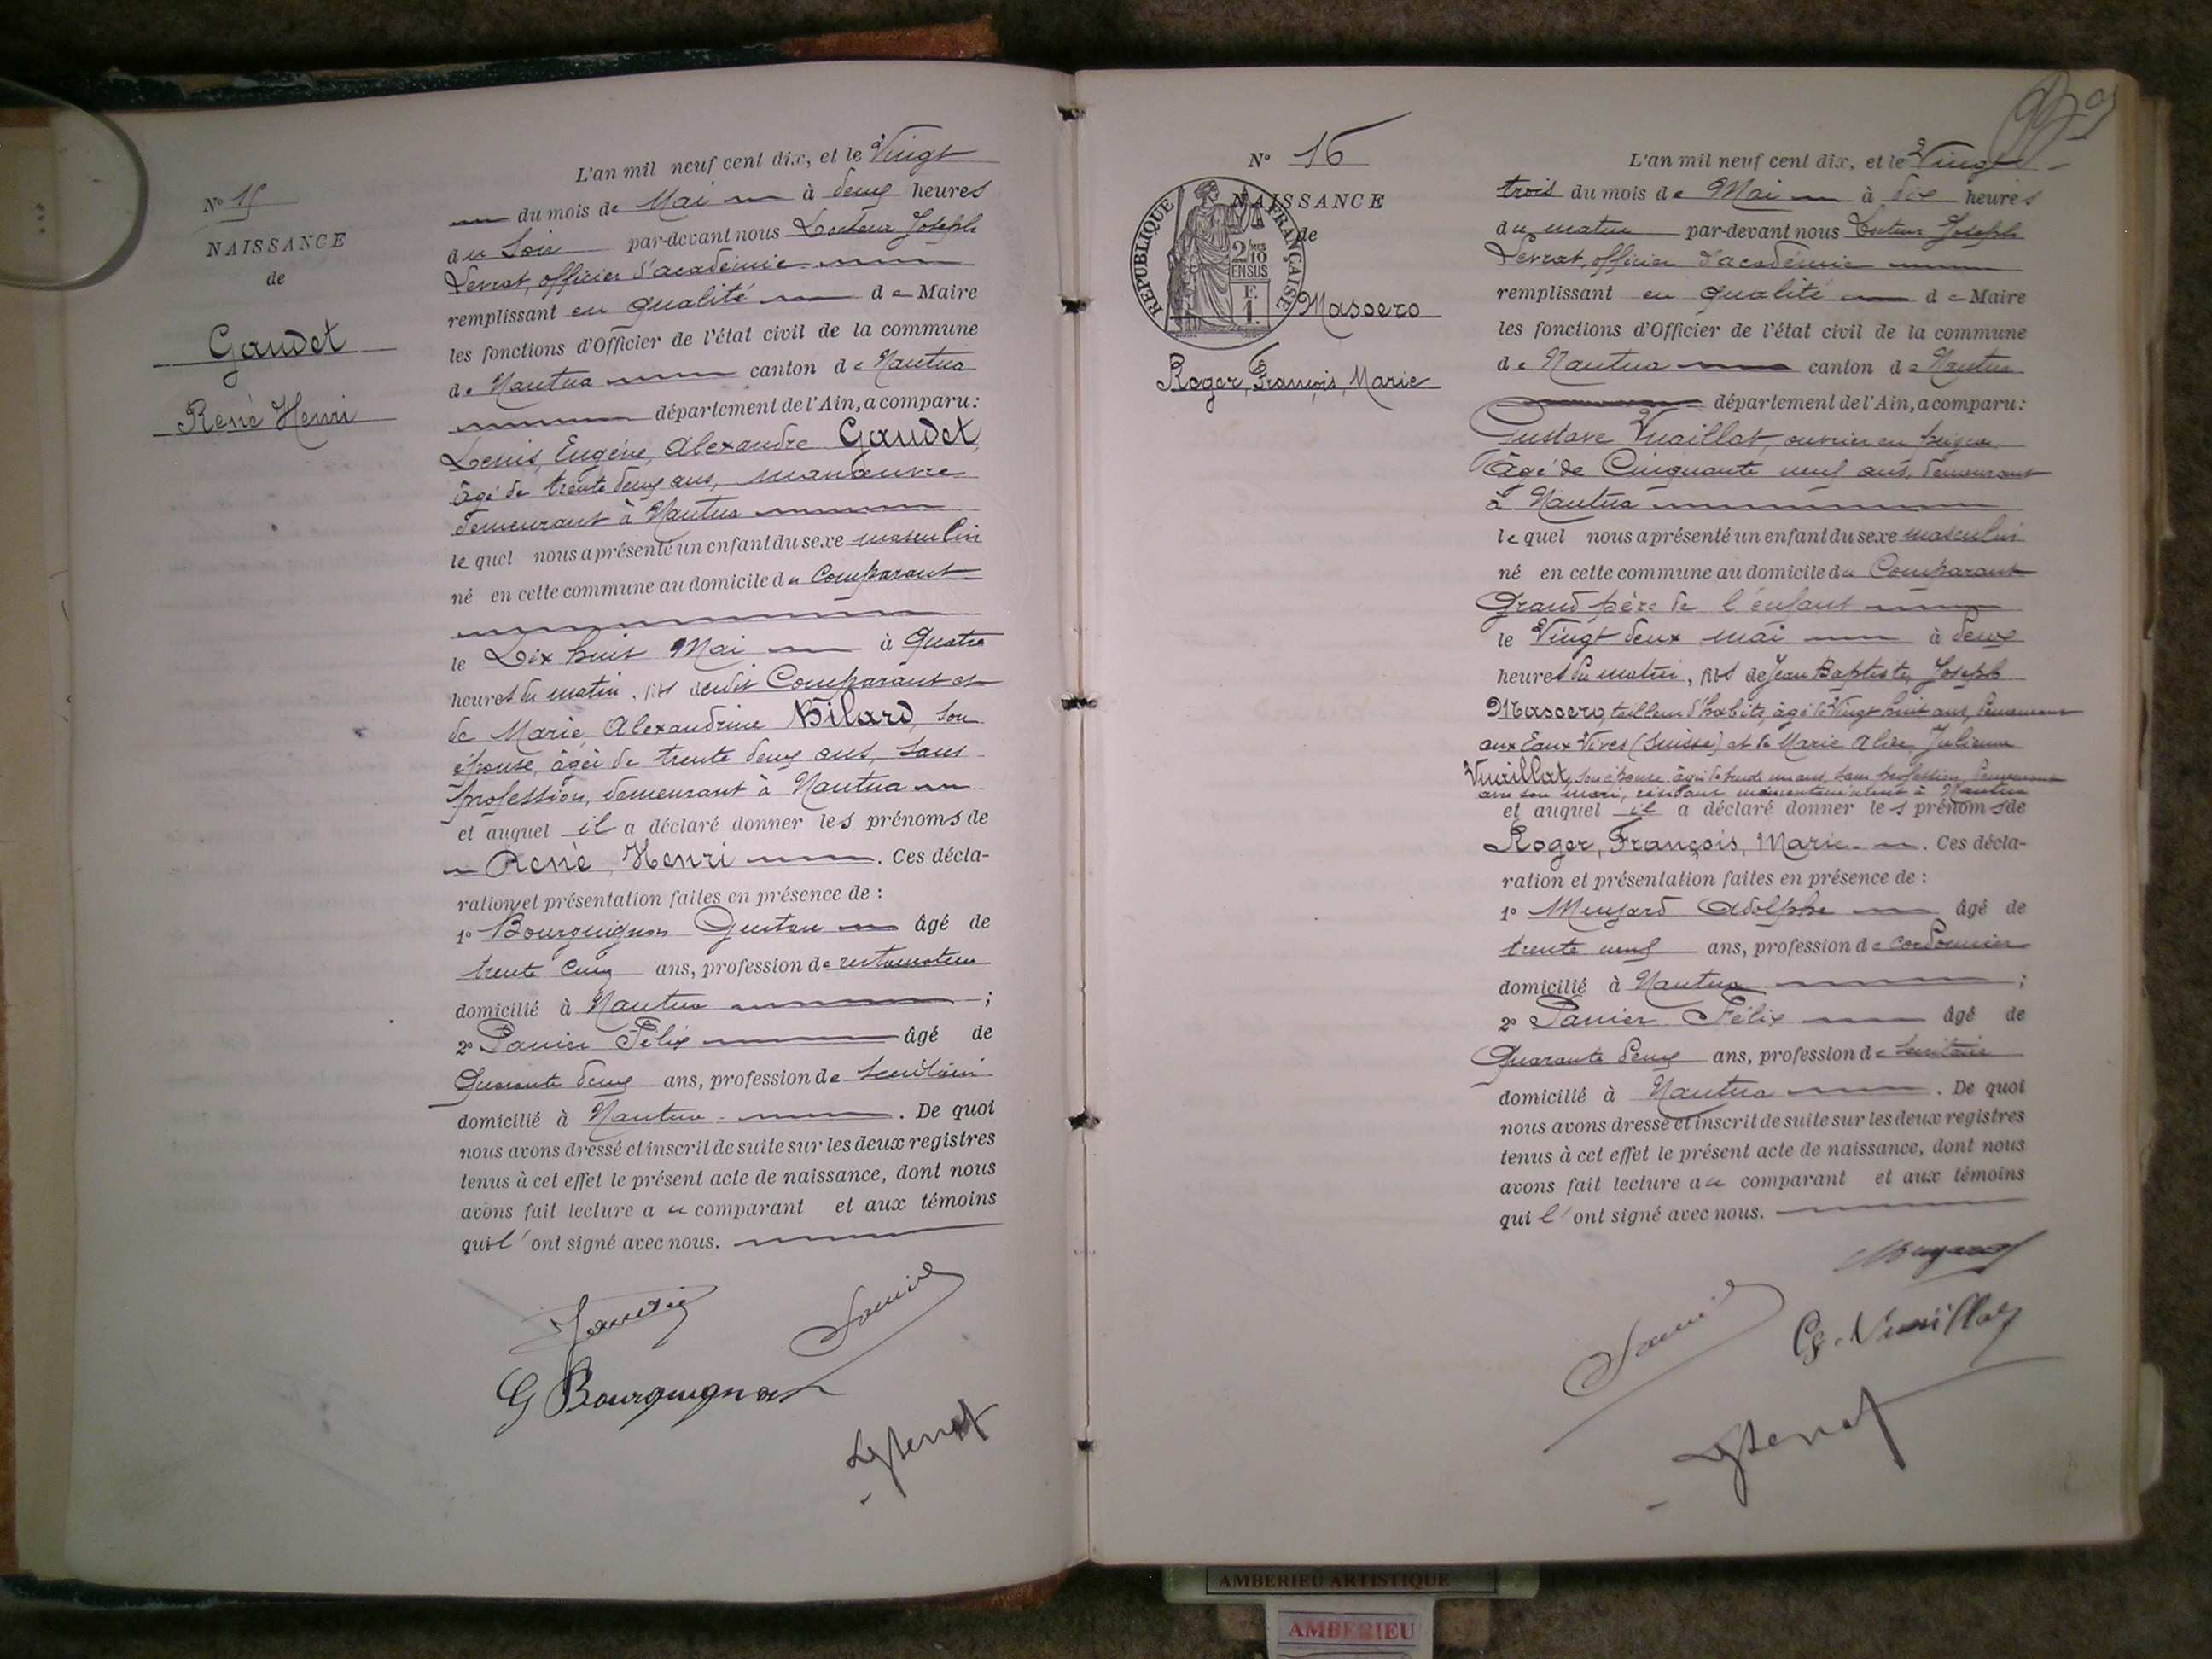 N° 15
NAISSANCE
de
Gaudet
René Henri
L'an mil neuf cent dix, et le Vingt
du mois de Mai à deux heures
du Soir par-devant nous Docteur Joseph
Levrat, officier d'académie
remplissant en qualité de Maire
les fonctions d'Officier de l'état civil de la commune
de Nantua canton de Nantua
département de l'Ain, a comparu :
Denis, Eugène, Alexandre Gaudet,
âgé de trente deux ans, manœuvre
demeurant à Nantua
lequel nous a présenté un enfant du sexe masculin
né en cette commune au domicile du Comparant
le Dix huit Mai à Quatre
heures du matin, fils dudit Comparant et
de Marie Alexandrine Bilard, son
épouse, âgée de trente deux ans, sans
profession, demeurant à Nantua
et auquel il a déclaré donner les prénoms de
René Henri. Ces décla-
ration et présentation faites en présence de :
1° Bourguignon Gustave âgé de
trente cinq ans, profession de restaurateur
domicilié à Nantua ;
2° Panier Félix âgé de
Quarante deux ans, profession de Secrétaire
domicilié à Nantua. De quoi
nous avons dressé et inscrit de suite sur les deux registres
tenus à cet effet le présent acte de naissance, dont nous
avons fait lecture au comparant et aux témoins
qui l'ont signé avec nous.
G Bourguignon
N° 16
NAISSANCE
de
RÉPUBLIQUE FRANÇAISE
2/10
EN SUS
F.
1.
Masoero
Roger, François, Marie
L'an mil neuf cent dix, et le Vingt
trois du mois de Mai à dix heures
du matin par-devant nous Docteur Joseph
Levrat, officier d'académie
remplissant en qualité de Maire
les fonctions d'Officier de l'état civil de la commune
de Nantua canton de Nantua
département de l'Ain, a comparu :
Gustave Vuaillat, ouvrier en peignes
âgé de Cinquante neuf ans, demeurant
à Nantua
lequel nous a présenté un enfant du sexe masculin
né en cette commune au domicile du Comparant
Grand père de l'enfant
le Vingt deux mai à deux
heures du matin, fils de Jean Baptiste, Joseph
Masoero, tailleur d'habits, âgé de Vingt huit ans, demeurant
aux Eaux Vives (Suisse) et de Marie Alice Julienne
Vuaillat, son épouse âgée de trente un ans, sans profession, demeurant
avec son mari, résidant momentanément à Nantua
et auquel il a déclaré donner les prénoms de
Roger, François, Marie. Ces décla-
ration et présentation faites en présence de :
1° Adolphe âgé de
trente neuf ans, profession de cordonnier
domicilié à Nantua ;
2° Panier Félix âgé de
Quarante deux ans, profession de Secrétaire
domicilié à Nantua. De quoi
nous avons dressé et inscrit de suite sur les deux registres
tenus à cet effet le présent acte de naissance, dont nous
avons fait lecture au comparant et aux témoins
qui l'ont signé avec nous.
G. Vuaillat
AMBERIEU ARTISTIQUE
AMBERIEU